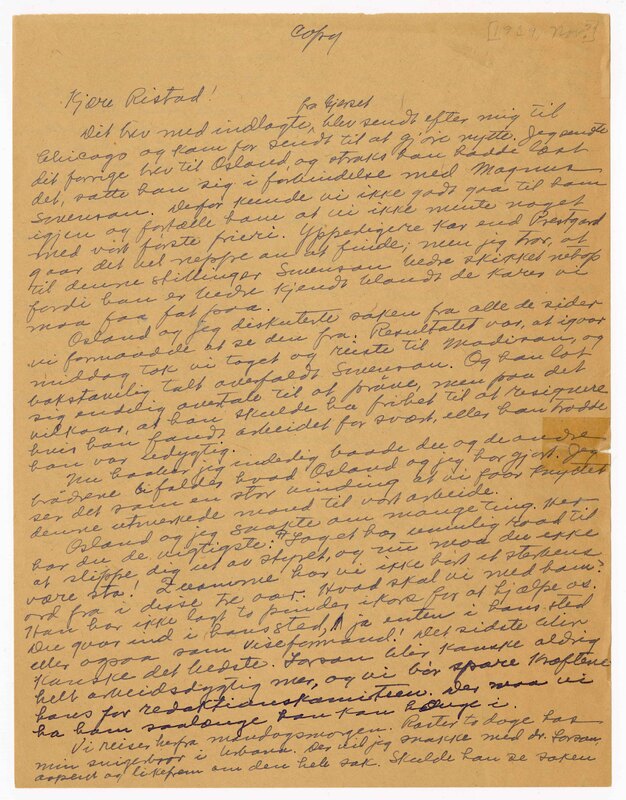 copy
[1929, Nov?]
Kjære Ristad!
fra Gjerset
Dit brev med indlagte, blev sendt efter mig til
Chicago og kom for sendt til at gjøre nytte. Jeg sendte
dit forrige brev til Osland, og straks han hadde læst
det, satte han sig i forbindelse med Magnus
Swenson. Derfor kunde vi ikke godt gaa til ham
igjen og fortælle ham at vi ikke mente noget
med vort første frieri. Yppedigere kar end Prestgard
gaar det vel neppe an at finde; men jeg tror, at
til denne stillinger Swenson bedre skikket netop
fordi han er bedre kjendt blandt de karer vi
maa faa fat paa.
Osland og jeg diskuterte saken fra alle de sider
vi formaadde at se den fra. Resultatet var, at igaar
middag tok vi toget og reiste til Madison, og
bokstavelig talt overfaldt Swenson. Og han lot
sig endelig overtale til at prøve, men paa det
vilkaar, at han skulde ha frihet til at resignere
hvis han fandt arbeidet for svært, eller han trodde
han var udygtig.
Nu haaber jeg inderlig baade du og de andre
brødrene bifalder hvad Osland og jeg har gjort. Jeg
ser det som en stor vinding at vi faar knyttet
denne utmerkede mand til vort arbeide.
Osland og jeg snakte om mange ting. Her
har du de vigtigste: Laget har umulig raad til
at slippe dig ut av styret, og nu maa du ikke
være sta! I samme har vi ikke hørt et sterbens
ord fra i disse tre aar. Hvad skal vi med ham?
Han har ikke lagt to pinder ikors for at hjælpe os.
Du gaar ind i hans sted, ja enten i hans sted
eller ogsaa som viseformand! Det sidste blir
kanske det bedste. Larson blir kanske aldrig
helt arbeidsdygtig mer, og vi bør spare kræftene
hans for redaktionskomiteen. Der maa vi
ha ham saalænge han kan hænge i.
Vi reiser herfra mandagsmorgen. Raster to dage hos
min svigerbror i Urbana. Der vil jeg snakke med dr. Larson,
aapent og likefrem om den hele sak. Skulde han se saken